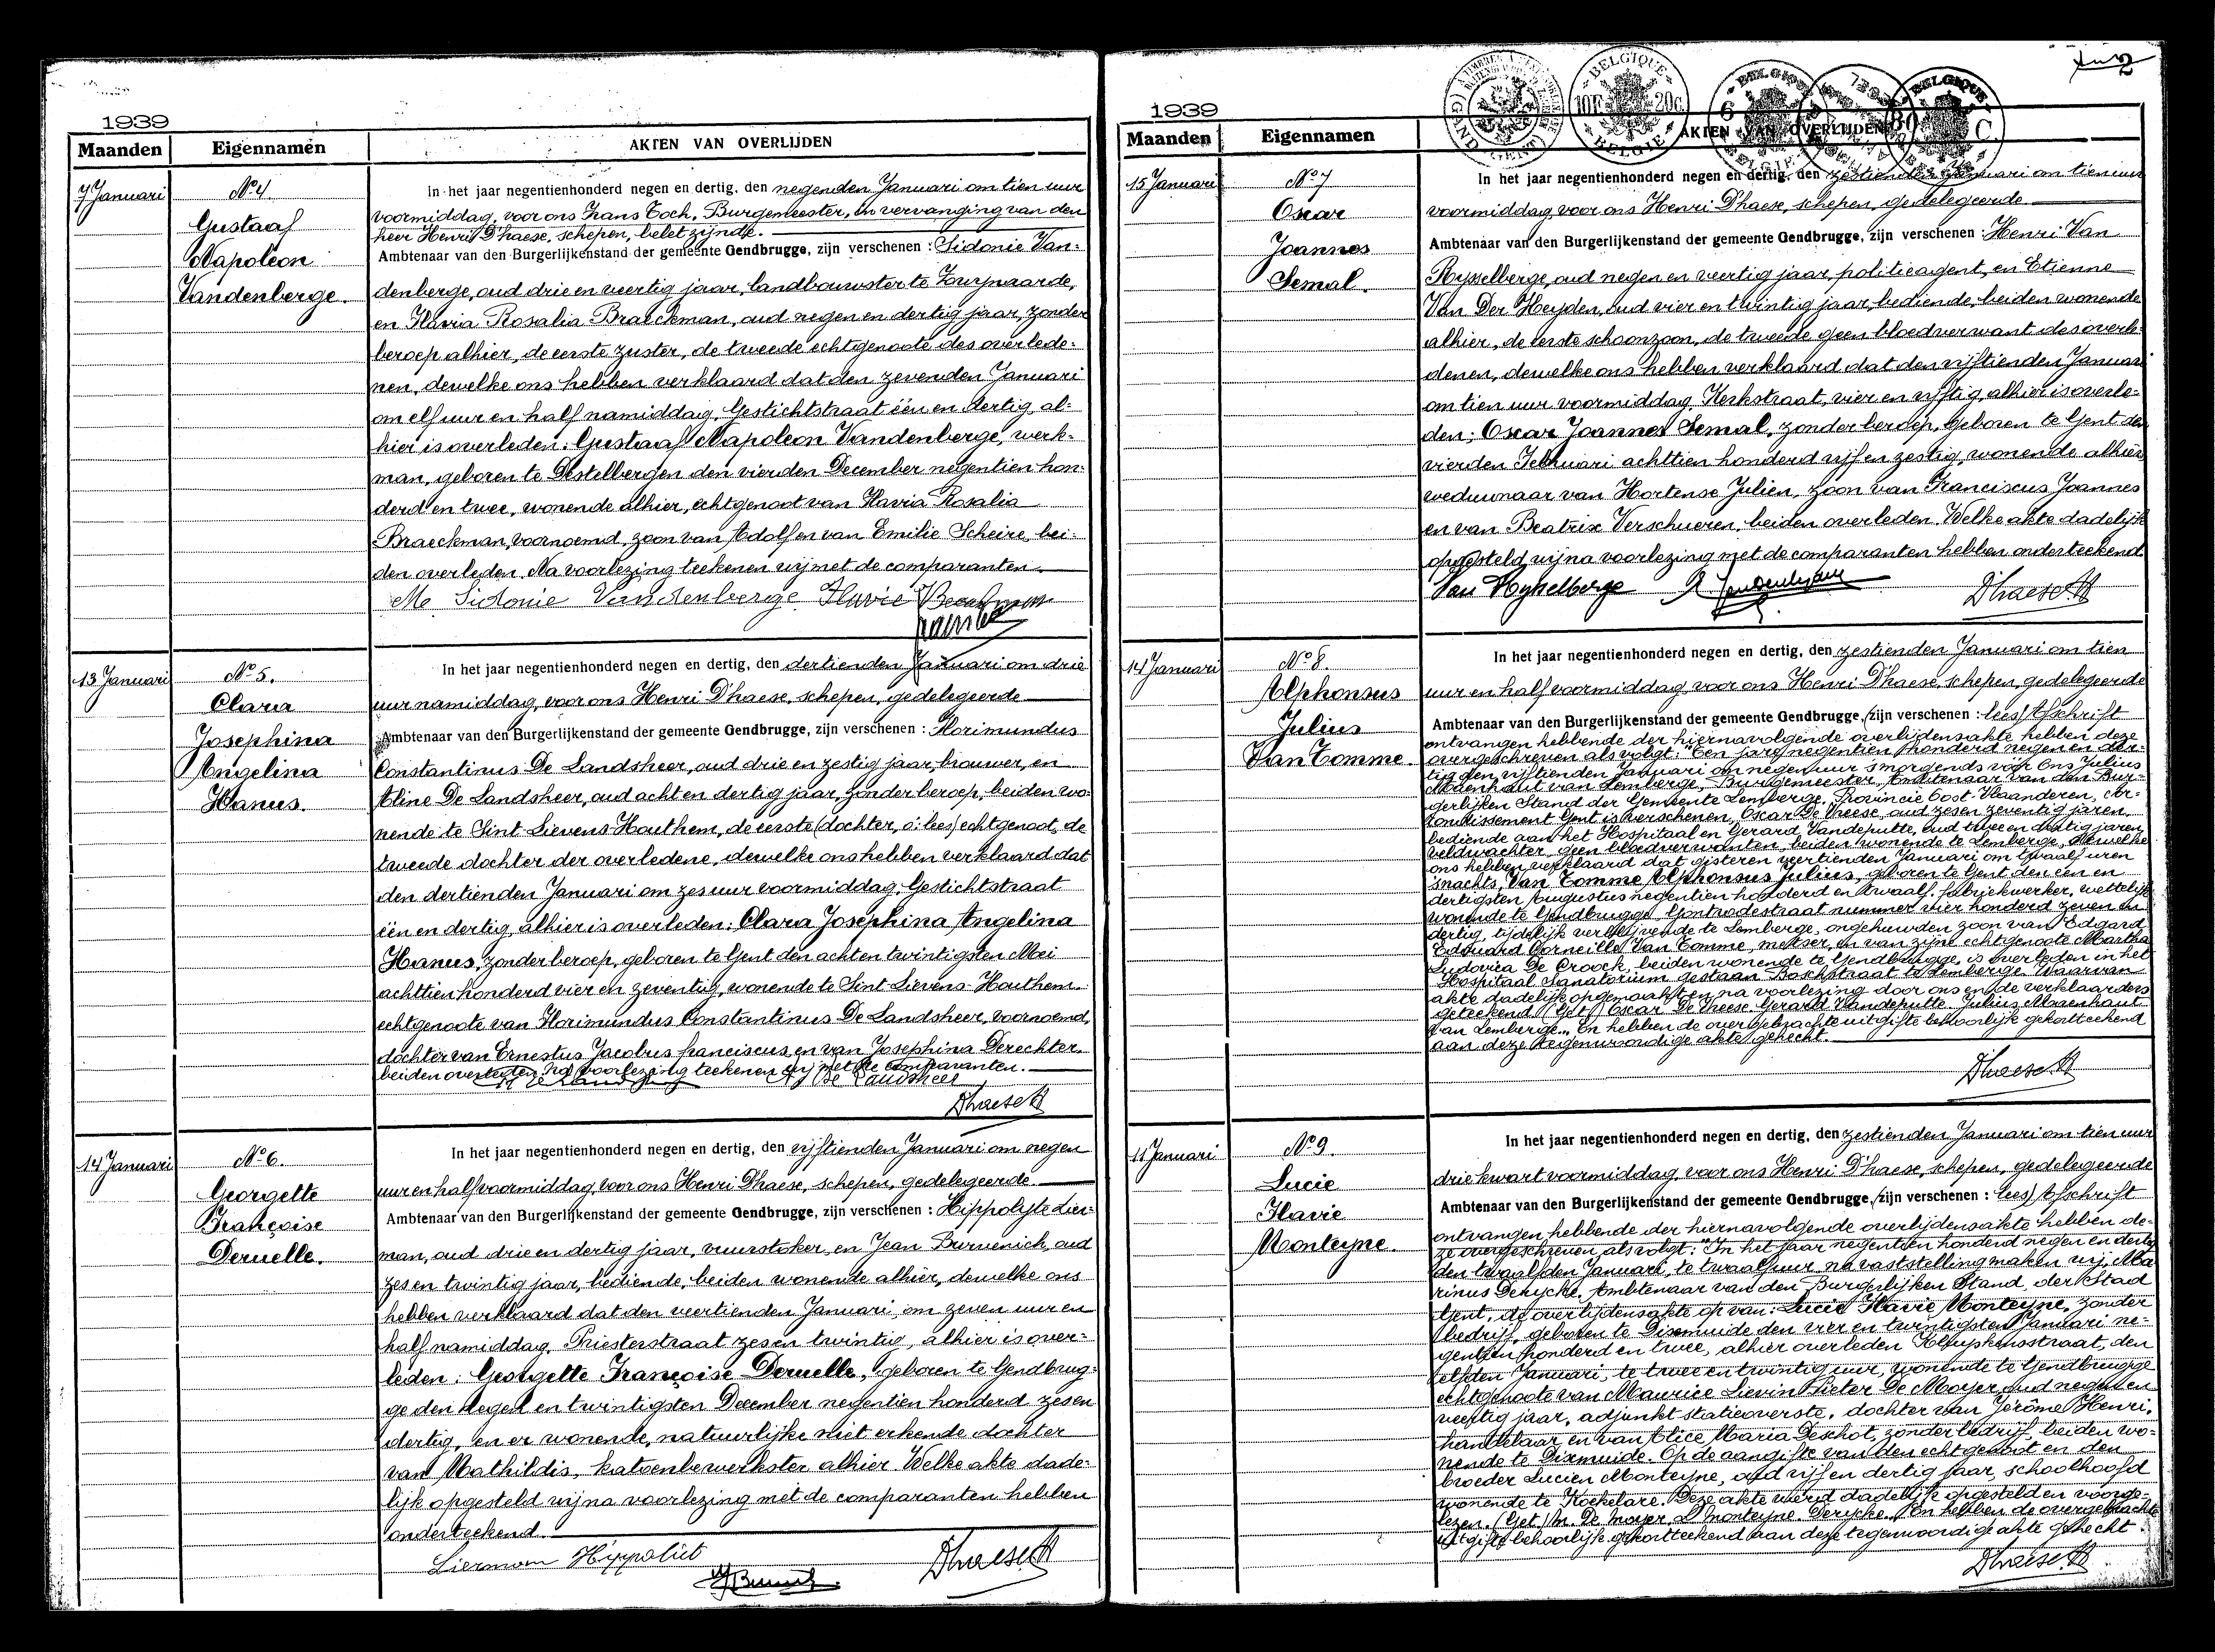 1939
Maanden Eigennamen AKTEN VAN OVERLIJDEN
7 Januari
Nº 4.
Gustaaf
Napoleon
Vandenberge.
In het jaar negentienhonderd negen en dertig, den negenden Januari om tien uur
voormiddag, voor ons Frans Toch, Burgemeester, in vervanging van den
heer Henri D'haese, schepen, belet zijnde.
Ambtenaar van den Burgerlijkenstand der gemeente Gendbrugge, zijn verschenen : Sidonie Van-
denberge, oud drie en veertig jaar, landbouwster te Zwijnaarde,
en Flavia Rosalia Braeckman, oud negen en dertig jaar, zonder
beroep alhier, de eerste zuster, de tweede echtgenoote des overlede-
nen, dewelke ons hebben verklaard dat den zevenden Januari
om elf uur en half namiddag, Gestichtstraat één en dertig, al-
hier is overleden: Gustaaf Napoleon Vandenberge, werk-
man, geboren te Destelbergen den vierden December negentien hon-
derd en twee, wonende alhier, echtgenoot van Flavia Rosalia
Braeckman, voornoemd, zoon van Adolf en van Emilie Scheire, bei-
den overleden. Na voorlezing teekenen wij met de comparanten.
Me Sidonie Vandenberge Flavie Braeckman
13 Januari
Nº 5.
Clara
Josephina
Angelina
Hanus.
In het jaar negentienhonderd negen en dertig, den dertienden Januari om drie
uur namiddag, voor ons Henri D'haese, schepen, gedelegeerde
Ambtenaar van den Burgerlijkenstand der gemeente Gendbrugge, zijn verschenen : Florimundus
Constantinus De Landsheer, oud drie en zestig jaar, brouwer, en
Aline De Landsheer, oud acht en dertig jaar, zonder beroep, beiden wo-
nende te Sint Lievens-Houthem, de eerste (dochter, o: lees) echtgenoot, de
tweede dochter der overledene, dewelke ons hebben verklaard dat
den dertienden Januari om zes uur voormiddag, Gestichtstraat
één en dertig, alhier is overleden: Clara Josephina Angelina
Hanus, zonder beroep, geboren te Gent den acht en twintigsten Mei
achttien honderd vier en zeventig, wonende te Sint Lievens-Houthem.
echtgenoote van Florimundus Constantinus De Landsheer, voornoemd,
dochter van Ernestus Jacobus franciscus en van Josephina Derechter.
beiden overleden. Na voorlezing teekenen wij met de comparanten.
De Landsheer
D'haese H
14 Januari
Nº 6.
Georgette
Françoise
Deruelle.
In het jaar negentienhonderd negen en dertig, den vijftienden Januari om negen
uur en half voormiddag, voor ons Henri D'haese, schepen, gedelegeerde
Ambtenaar van den Burgerlijkenstand der gemeente Gendbrugge, zijn verschenen : Hippolyte Lier-
man, oud drie en dertig jaar, vuurstoker, en Jean Burvenich, oud
zes en twintig jaar, bediende, beiden wonende alhier, dewelke ons
hebben verklaard dat den veertienden Januari, om zeven uur en
half namiddag, Priesterstraat zes en twintig, alhier is over-
leden: Georgette Françoise Deruelle, geboren te Gendbrug-
ge den negen en twintigsten December negentien honderd zes en
dertig, en er wonende, natuurlijke niet erkende dochter
van Mathildis, katoenbewerkster alhier. Welke akte dade-
lijk opgesteld wij na voorlezing met de comparanten hebben
onderteekend.
Liermam Hippoliet
D'haese H
2
1939
BELGIQUE 10F 20c BELGIE
Maanden Eigennamen AKTEN VAN OVERLIJDEN
15 Januari
Nº 7
Oscar
Joannes
Semal.
In het jaar negentienhonderd negen en dertig, den zestienden Januari om tien uur
voormiddag, voor ons Henri D'haese, schepen, gedelegeerde
Ambtenaar van den Burgerlijkenstand der gemeente Gendbrugge, zijn verschenen : Henri Van
Rysselberge, oud negen en veertig jaar, politieagent, en Etienne
Van Der Heyden, oud vier en twintig jaar, bediende, beiden wonende
alhier, de eerste schoonzoon, de tweede geen bloedverwant des overle-
denen, dewelke ons hebben verklaard dat den vijftienden Januari
om tien uur voormiddag, Kerkstraat, vier en vijftig, alhier is overle-
den: Oscar Joannes Semal, zonder beroep, geboren te Gent den
vierden Februari achttien honderd vijf en zestig, wonende alhier,
weduwnaar van Hortense Julien, zoon van Franciscus Joannes
en van Beatrix Verschueren, beiden overleden. Welke akte dadelijk
opgesteld wij na voorlezing met de comparanten hebben onderteekend
Van Rysselberge
D'haese H
14 Januari
Nº 8.
Alphonsus
Julius
Van Tomme.
In het jaar negentienhonderd negen en dertig, den zestienden Januari om tien
uur en half voormiddag, voor ons Henri D'haese, schepen, gedelegeerde
Ambtenaar van den Burgerlijkenstand der gemeente Gendbrugge, (zijn verschenen : lees) Afschrift
ontvangen hebbende der hiernavolgende overlijdensakte hebben deze
overgeschreven als volgt: "Een jare negentien honderd negen en der-
tig den vijftienden Januari om negen uur 's morgends vóór Ons Julius
Moenhaut van Lemberge, Burgemeester, Ambtenaar van den Bur-
gerlijken Stand der Gemeente Lemberge, Provincie Oost-Vlaanderen, ar-
rondissement Gent is verschenen, Oscar De Vreese, oud zes en zeventig jaren,
bediende aan het Hospitaal en Gerard Vandeputte, oud twee en dertig jaren,
veldwachter, geen bloedverwanten, beiden wonende te Lemberge, dewelke
ons hebben verklaard dat gisteren veertienden Januari om twaalf uren
's nachts, Van Tomme Alphonsus Julius, geboren te Gent den één en
dertigsten Augustus negentien honderd en twaalf, fabriekwerker, wettelijk
wonende te Gendbrugge, Gontrodestraat nummer vier honderd zeven en
dertig, tijdelijk verblijvende te Lemberge, ongehuwden zoon van Edgard
Edouard Corneille Van Tomme, metser, en van zijne echtgenoote Martha
Ludovica De Croock, beiden wonende te Gendbrugge, is overleden in het
Hospitaal Sanatorium gestaan Boschstraat te Lemberge. Waarvan
akte dadelijk opgemaakt en na voorlezing door ons en de verklaarders
geteekend. (Get.) Oscar De Vreese. Gerard Vandeputte. Julius Moenhaut
van Lemberge." En hebben de overgebrachte uitgifte behoorlijk gekortteekend
aan deze tegenwoordige akte gehecht.
D'haese H
11 Januari
Nº 9.
Lucie
Flavie
Monteyne.
In het jaar negentienhonderd negen en dertig, den zestienden Januari om tien uur
drie kwart voormiddag, voor ons Henri D'haese, schepen, gedelegeerde
Ambtenaar van den Burgerlijkenstand der gemeente Gendbrugge, (zijn verschenen : lees) Afschrift
ontvangen hebbende der hiernavolgende overlijdensakte hebben de-
ze overgeschreven als volgt: "In het jaar negentien honderd negen en dertig
den twaalfden Januari, te twaalf uur, na vaststelling maken wij, Ma-
rinus Derycke, Ambtenaar van den Burgerlijken Stand, der Stad
Gent, de overlijdensakte op van: Lucie Flavie Monteyne, zonder
bedrijf, geboren te Dixmuide den vier en twintigsten Januari ne-
gentien honderd en twee, alhier overleden Kluyskensstraat, den
elfden Januari, te twee en twintig uur, wonende te Gendbrugge
echtgenoote van Maurice Lievin Pieter De Moyer, oud negen en
veertig jaar, adjunkt statieoverste, dochter van Jérôme Henri,
handelaar en van Alice Maria Deschot, zonder bedrijf, beiden wo-
nende te Dixmuide. Op de aangifte van den echtgenoot en den
broeder Lucien Monteyne, oud vijf en dertig jaar, schoolhoofd
wonende te Koekelare. Deze akte werd dadelijk opgesteld en voorge-
lezen. (Get.) M. De Moyer. L. Monteyne. Derycke." En hebben de overgebrachte
uitgifte behoorlijk gekortteekend aan deze tegenwoordige akte gehecht.
D'haese H